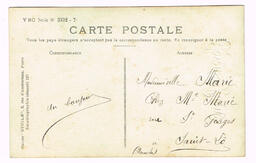 CARTE POSTALE
Tous les pays étrangers n'acceptent pas la correspondance au recto. Se renseigner à la poste
CORRESPONDANCE
ADRESSE
un bonjour
Mademoiselle Marie
chez Mr Marie
rue St Georges
Saint-Lô
(Manche)